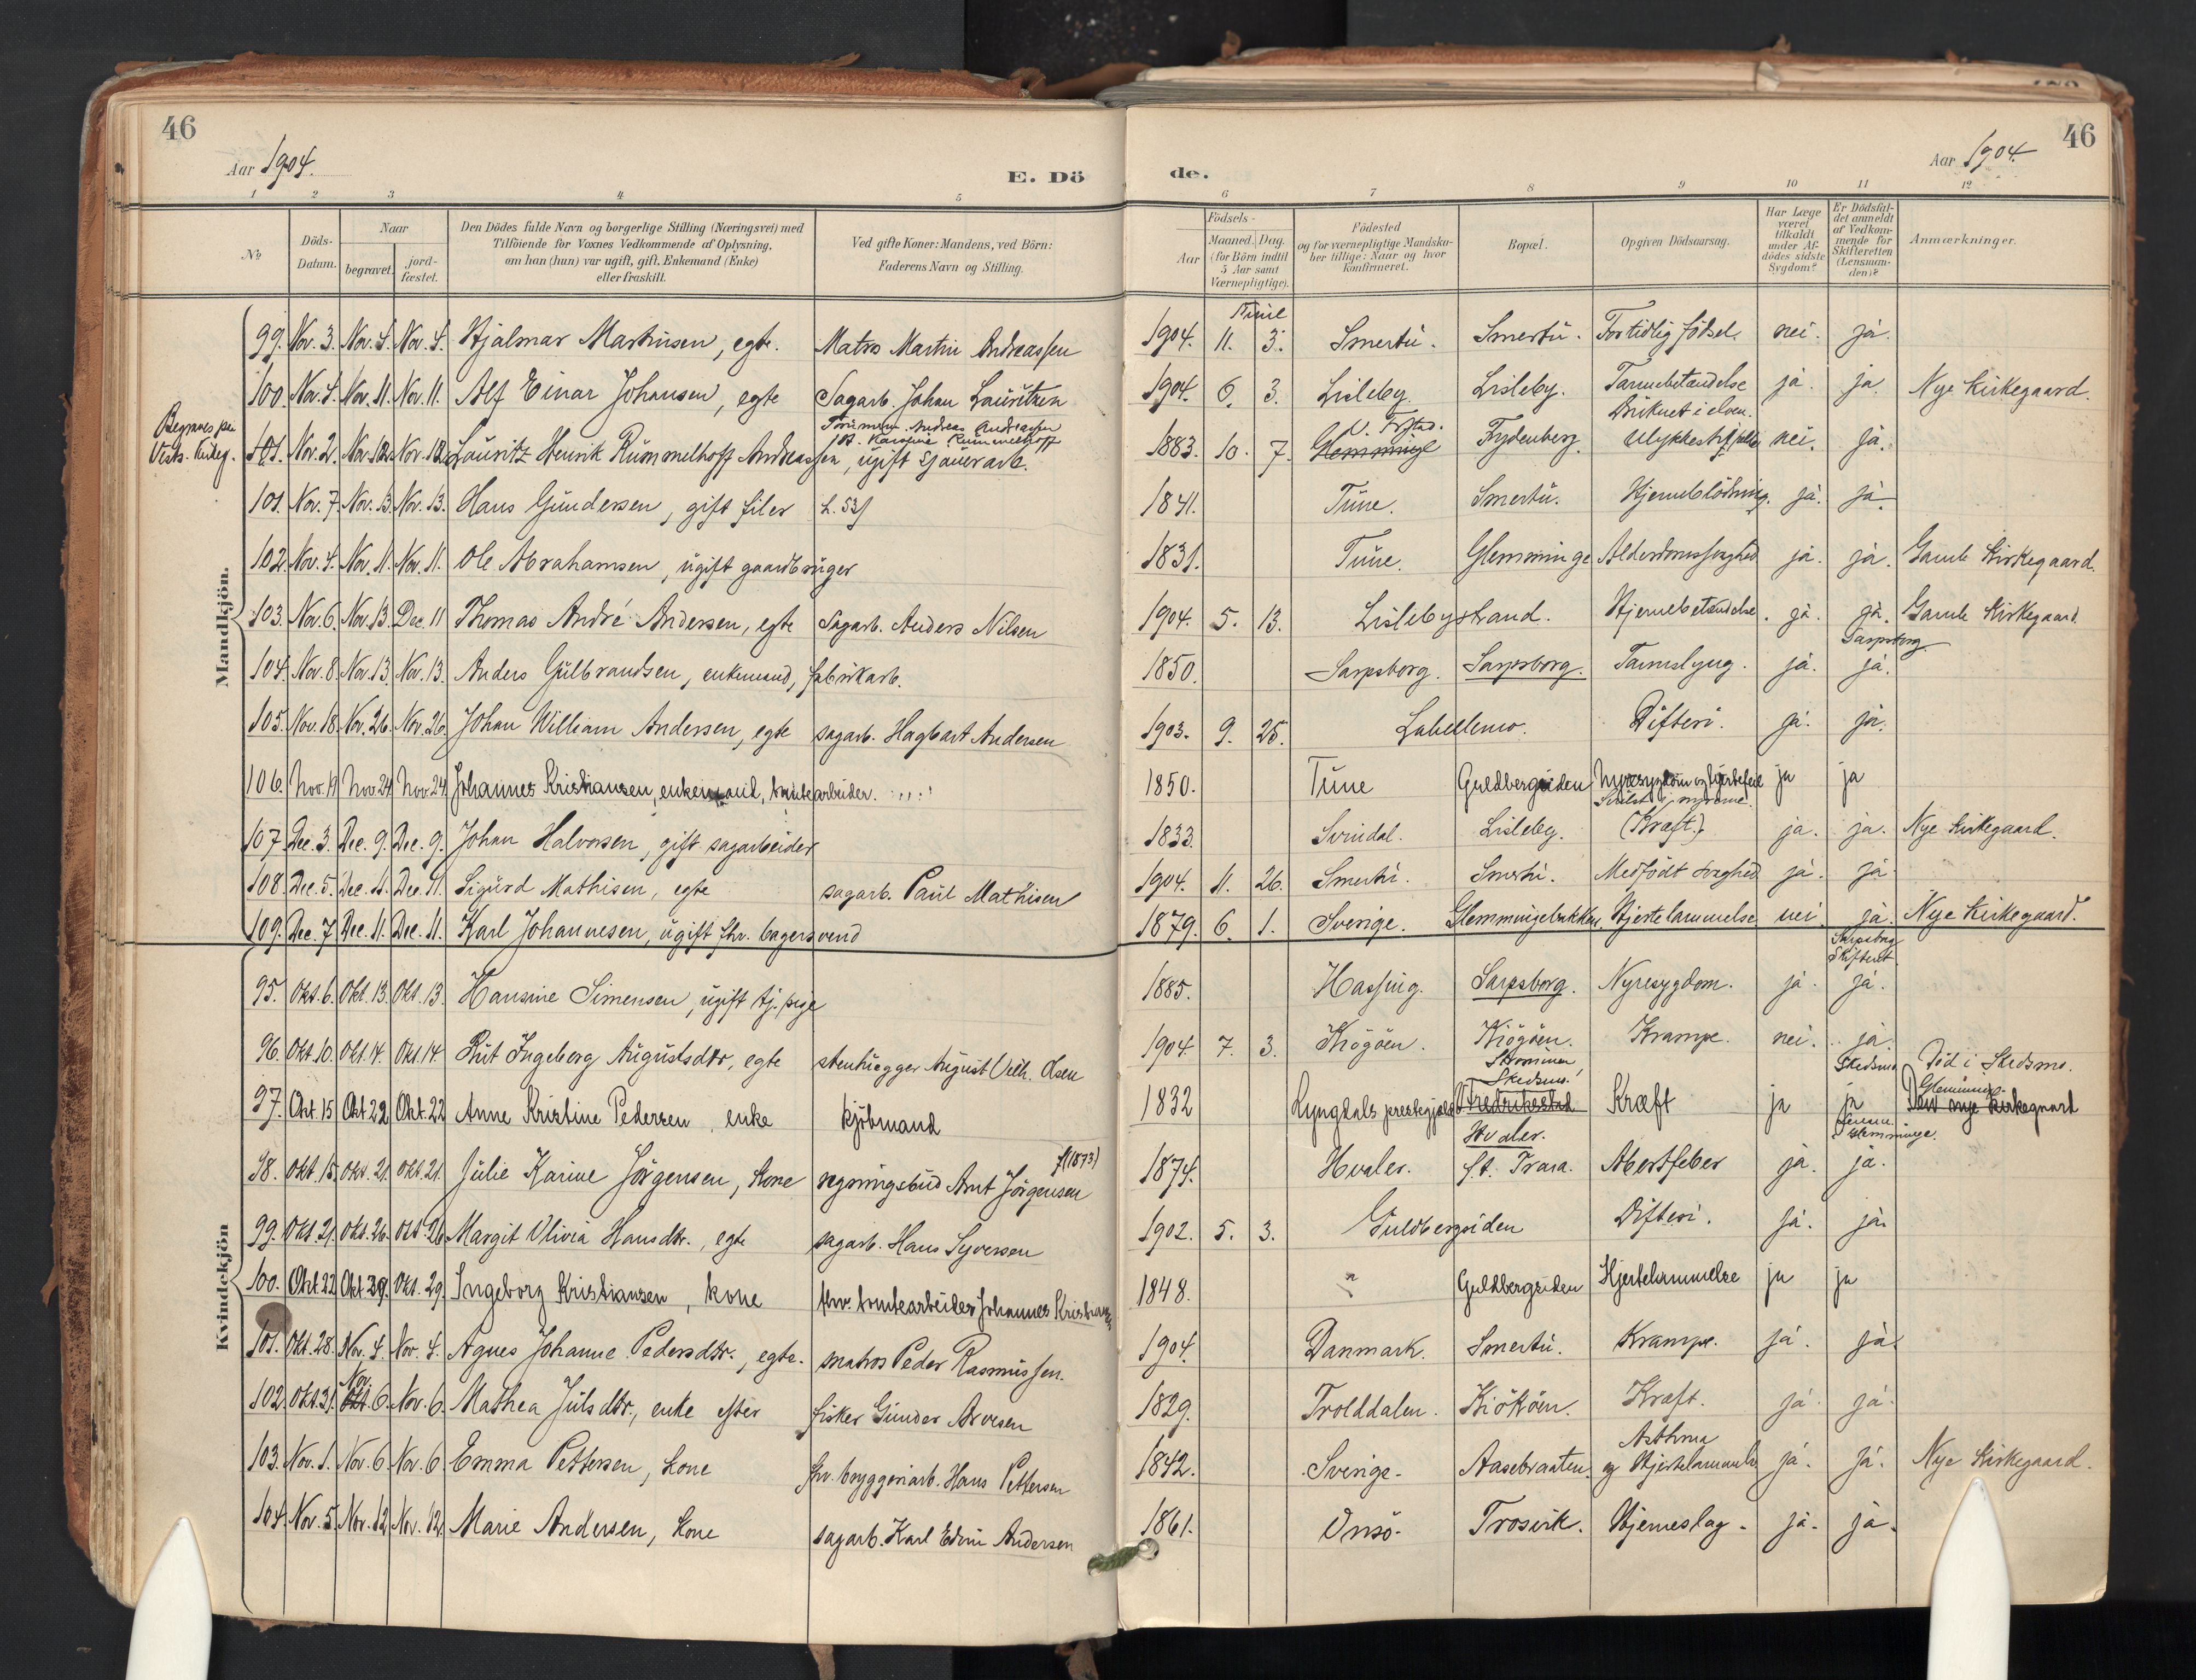 46
Aar 1904.
E. Dö
de.
Aar 1904.
46
1 2 3 4 5 6 7 8 9 10 11 12
No
Döds-Datum.
Naar
begravet.
jord-fæstet.
Den Dödes fulde Navn og borgerlige Stilling (Næringsvei) med
Tilföiende for Voxnes Vedkommende af Oplysning,
om han (hun) var ugift, gift, Enkemand (Enke)
eller fraskilt.
Ved gifte Koner: Mandens, ved Börn:
Faderens Navn og Stilling.
Födsels-
Aar
Maaned. Dag.
(for Börn indtil
5 Aar samt
Værnepligtige).
Födested
og for værnepligtige Mandska-
ber tillige: Naar og hvor
konfirmeret.
Bopæl.
Opgiven Dödsaarsag.
Har Læge
været
tilkaldt
under Af-
dödes sidste
Sygdom?
Er Dödsfal-
det anmeldt
af Vedkom-
mende for
Skifteretten
(Lensman-
den)?
Anmærkninger.
Mandkjön.
99. Nov. 3. Nov. 4. Nov. 4. Hjalmar Martinsen, egte. Matros Martin Andreassen 1904. 11. 3. Smertu. Smertu. For tidlig födsel. nei. ja.
100. Nov. 4. Nov. 11. Nov. 11. Alf Einar Johansen, egte Sagarb. Johan Lauritzen 1904. 6. 3. Lisleby. Lisleby. Tarmbetændelse ja. ja. Nye Kirkegaard.
Begraves paa
Vestr. Kirkeg.
Andreas Andreassen
Karoline Rummelhoff
Druknet i elven.
101. Nov. 2. Nov. 12. Nov. 12. Lauritz Henrik Rummelhoff Andreassen, ugift sjauerarb. 1883. 10. 7. Glemminge Frydenberg. Ulykkestilfælde nei. ja.
101. Nov. 7. Nov. 13. Nov. 13. Hans Gundersen, gift filer 1841. Tune. Smertu. Hjerneblödning. ja. ja.
102. Nov. 4. Nov. 11. Nov. 11. Ole Abrahamsen, ugift gaardbruger 1831. Tune. Glemminge Alderdomssvaghed ja. ja. Gamle Kirkegaard.
103. Nov. 6. Nov. 13. Dec. 11 Thomas André Andersen, egte Sagarb. Anders Nilsen 1904. 5. 13. Lislebystrand. Hjernebetændelse. ja. ja. Gamle Kirkegaard.
Sarpsborg
104. Nov. 8. Nov. 13. Nov. 13. Anders Gulbrandsen, enkemand, fabrikarb. 1850. Sarpsborg. Sarpsborg. Tarmslyng. ja. ja.
105. Nov. 18. Nov. 26. Nov. 26. Johan William Andersen, egte sagarb. Hagbart Andersen 1903. 9. 25. Labellemo. Difteri. ja. ja.
106. Nov. 19 Nov 24 Nov. 24 Johannes Kristiansen, enkemand, tomtearbeider. 1850. Tune Guldbergsiden Nyresygdom og hjertefeil ja ja
107. Dec. 3. Dec. 9. Dec. 9. Johan Halvorsen, gift sagarbeider 1833. Svindal. Lisleby. (Kræft.) ja. ja. Nye Kirkegaard.
108. Dec. 5. Dec. 11. Dec. 11. Sigurd Mathisen, egte sagarb. Paul Mathisen 1904. 11. 26. Smertu. Smertu. Medfödt svaghed ja. ja
109. Dec. 7. Dec. 11. Dec. 11. Karl Johannesen, ugift fhv. bagersvend 1879. 6. 1. Sverige. Glemmingebakken. Hjertelammelse nei. ja. Nye Kirkegaard.
Kvindekjön
Sarpsborg
Skifteret.
95. Okt. 6. Okt. 13. Okt. 13. Hansine Simensen, ugift tj. pige 1885. Hassing. Sarpsborg. Nyresygdom. ja. ja.
96. Okt. 10. Okt. 14. Okt. 14 Rut Ingeborg Augustsdtr, egte stenhugger August Vilh. Olsen 1904. 7. 3. Krögöen. Kiögöen. Krampe. nei. ja.
Strömmen
Skedsmo.
Skedsmo Död i Skedsmo.
Glemminge
97. Okt 15 Okt 22 Okt. 22 Anne Kristine Pedersen, enke kjöbmand 1832 Lyngdals prestegjæld Fredriksstad Kræft ja ja Den nye Kirkegaard
Hvaler.
Glemminge.
f (1873)
98. Okt. 15. Okt. 21. Okt. 21. Julie Karine Jörgensen, kone regningsbud Arnt Jörgensen 1874. Hvaler. f.t. Trara. Abortfeber ja. ja.
99. Okt. 21. Okt. 26. Okt. 26 Margit Olivia Hansdtr., egte sagarb. Hans Syversen 1902. 5. 3. Guldbergsiden Difteri. ja. ja.
100. Okt. 22 Okt 29. Okt. 29. Ingeborg Kristiansen, kone fhv. tomtearbeider Johannes Kristiansen 1848. " Guldbergsiden Hjertelammelse ja ja
101. Okt. 28. Nov. 4. Nov. 4. Agnes Johanne Pedersdtr., egte. matros Peder Rasmussen. 1904. Danmark. Smertu. Krampe. ja. ja.
Nov.
102. Okt. 31. Okt. 6. Nov. 6. Mathea Julsdtr., enke efter fisker Gunder Arvesen 1829. Trolddalen. Kiököen. Kræft. ja. ja.
Asthma
103. Nov. 1. Nov. 6. Nov. 6. Emma Pettersen, kone fhv. bryggeriarb. Hans Pettersen 1842. Sverige. Aasebraaten. og Hjertelammelse ja. ja. Nye Kirkegaard.
104. Nov. 5. Nov. 12. Nov. 12. Marie Andersen, kone sagarb. Karl Edvin Andersen 1861. Onsö. Trosvik. Hjerneslag. ja. ja.